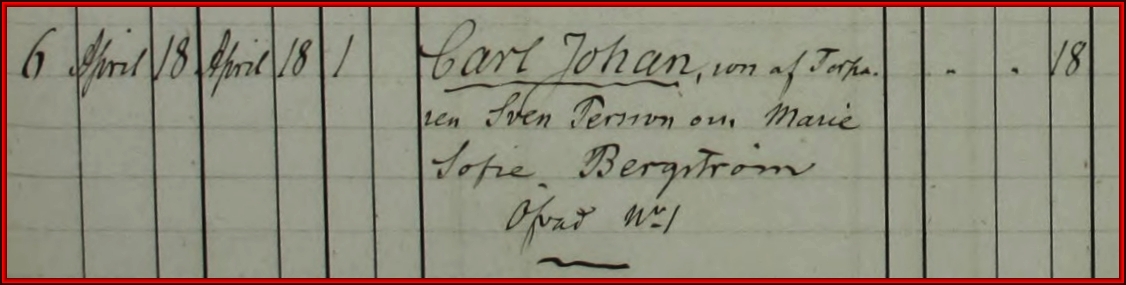 6 April 18 April 18 1 Carl Johan, son af Torpa- " " 18
ren Sven Persson och Marie
Sofie Bergström
Ofvad No 1